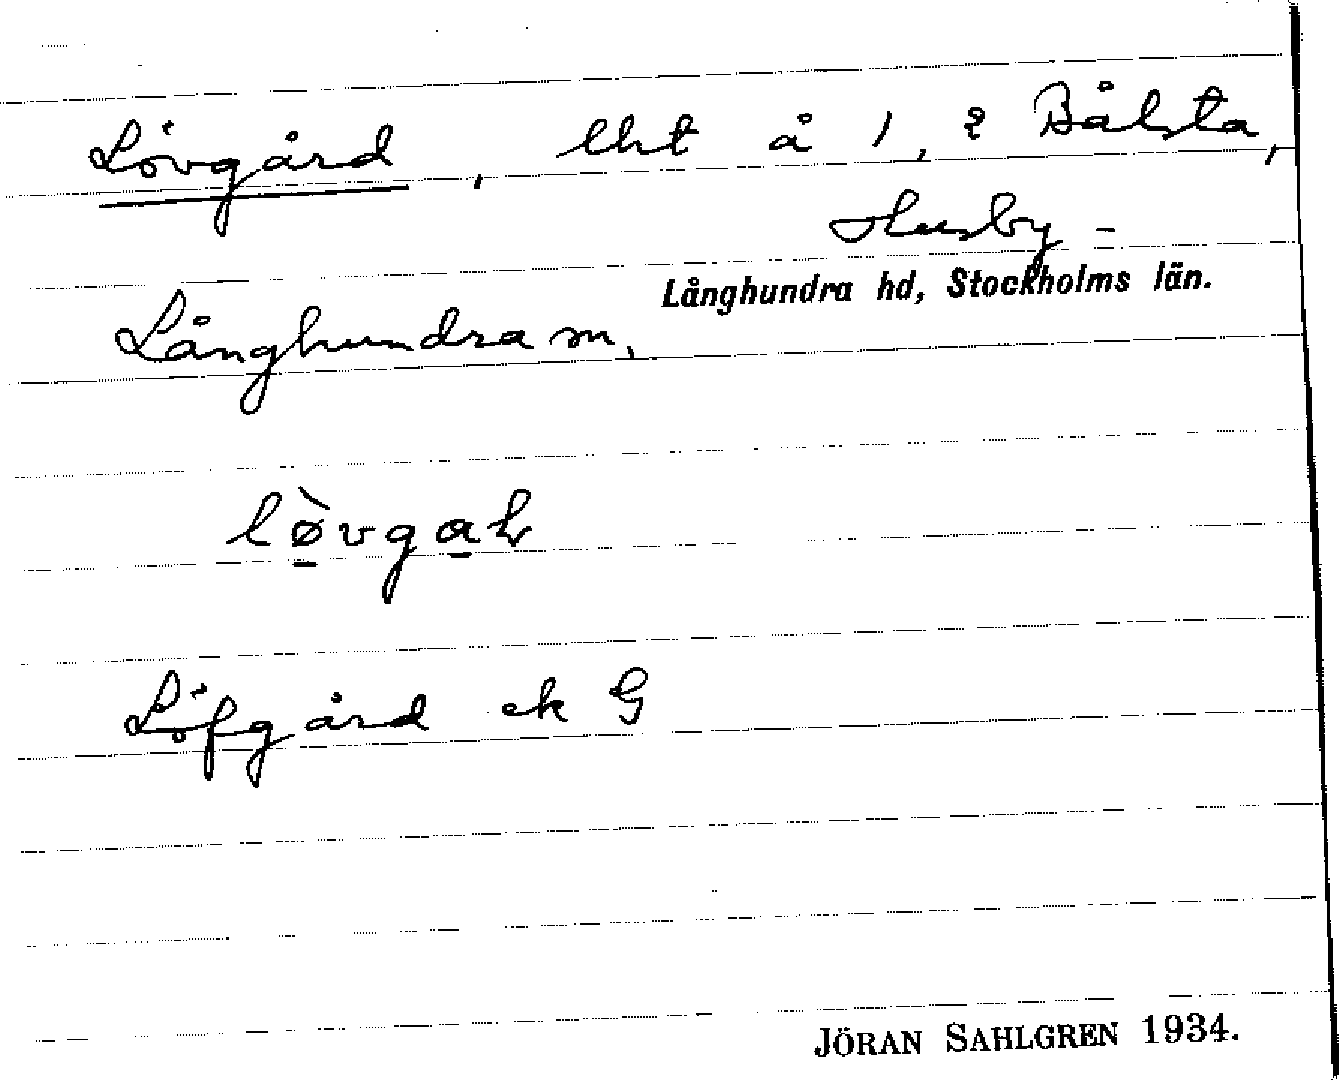 Lövgård, lht å 1, 2 Bålsta,
Husby-
Långhundra hd, Stockholms län.
Långhundra sn.
Löfgård ek G
JÖRAN SAHLGREN 1934.